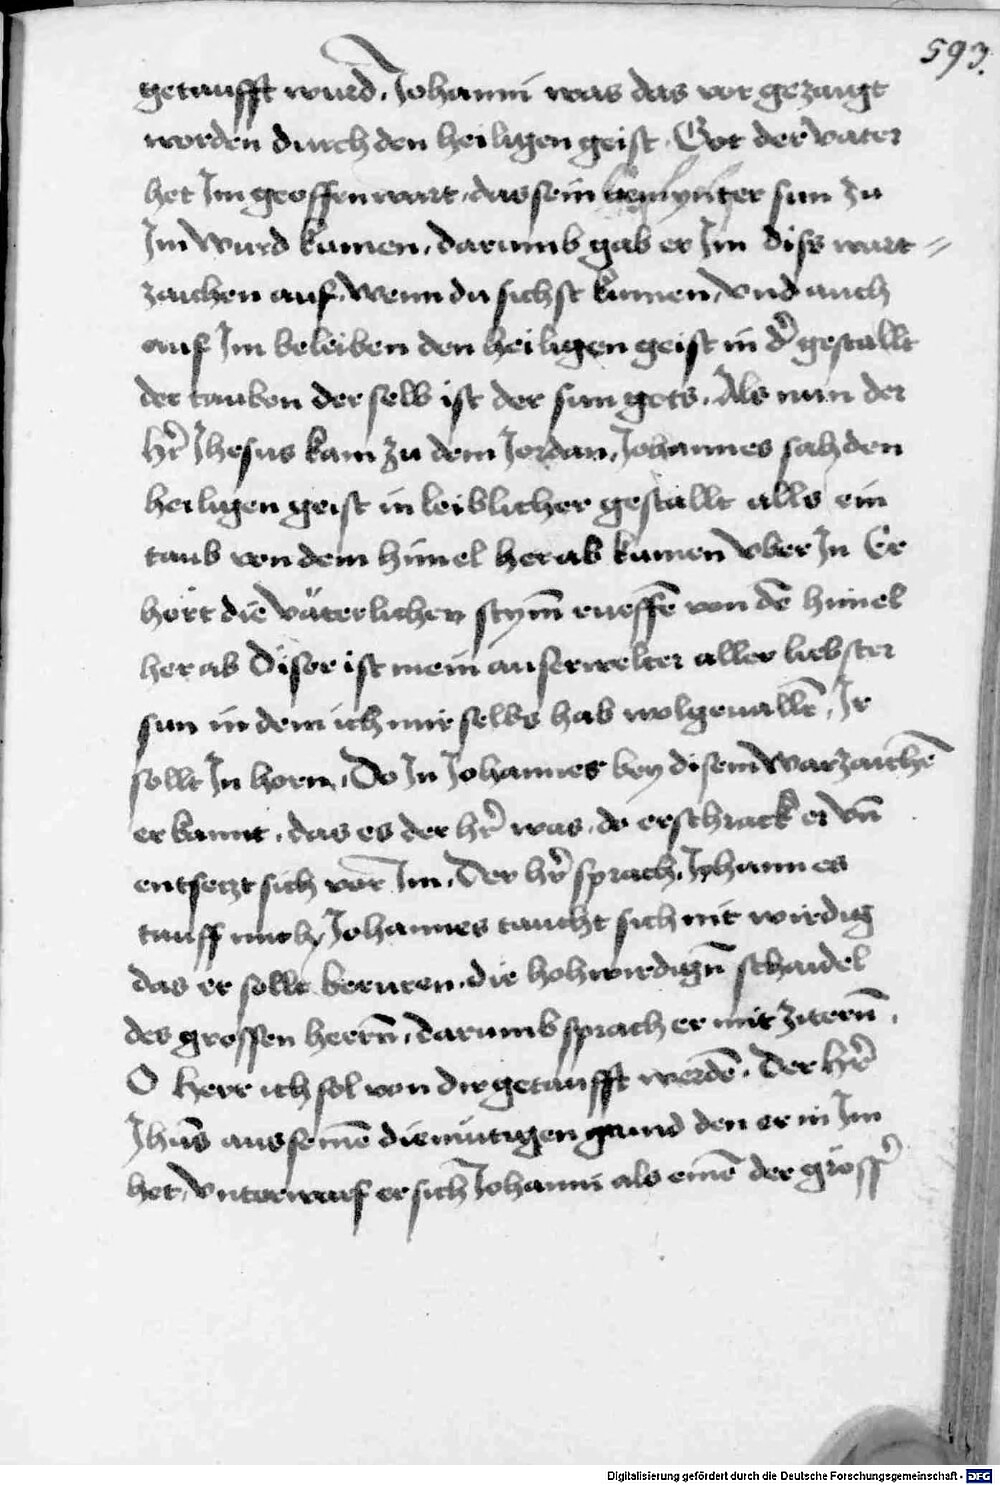 593.
getaufft wurd. Johanni was das vor gezaigt
worden durch den heiligen geist. Got der vater
het Im geoffenwart, das sein sun zu
Im wurd kumen, darumb gab er Im diss wart=
zaichen auf, wenn du sichst kumen, vnd auch
auf Im beleiben den heiligen geist in dʼ gestallt
der tauben der selb ist der sun gots. Als nun der
hʼr Jhesus kam zu dem Jordan, Johannes sah den
heiligen geist in leiblicher gestallt alls ein
taub von dem himel herab kumen vber In Er
hört die väterlichen stym̄ rueffē von dē himel
her ab Diser ist mein auserwelter aller liebster
sun in dem ich mir selbs hab wolgeuallē, Ir
sollt In horn, Do In Johannes bey disem warzaichē
erkannt, das es der hʼr was, do erschrack er vn̄
entsetzt sich vor Im, Der hʼr sprach, Johannes
tauff mich, Johannes taucht sich nit wirdig
das er sollt beruren, die hohwirdign̄ schaidel
des grossen herrn̄, darumb sprach er mit zitern̄,
O Herr ich sol von dir getaufft werdē. Der hʼr
Jhūs aus seinē diemütigen grund den er in Im
het, vnterwarf er sich Johanni als einē der grössʼ
Digitalisierung gefördert durch die Deutsche Forschungsgemeinschaft - DFG